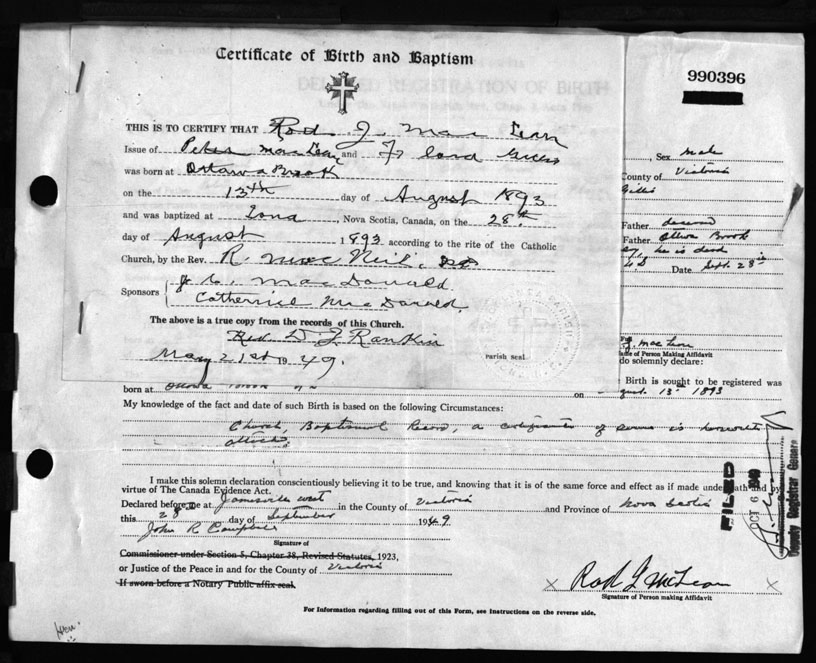 Certificate of Birth and Baptism
990396
THIS IS TO CERTIFY THAT Rod J. Mac Lean
Issue of Peter MacLean and Gillis
was born at Ottawa Brook
on the 13th day of August 1893
and was baptized at Iona, Nova Scotia, Canada, on the 28th
day of August 1893 according to the rite of the Catholic
Church, by the Rev. R. MacNeil, PP
Sponsors J. C. MacDonald
Catherine MacDonald.
The above is a true copy from the records of this Church.
Rev D J Rankin
May 21st 1949. parish seal.
Sex male
County of Victoria
Gillis
Father
Father Ottawa Brook
he is dead
Date Sept. 28
J. MacLean
Name of Person Making Affidavit
do solemnly declare:
Birth is sought to be registered was
born at Ottawa Brook on 13th 1893
My knowledge of the fact and date of such Birth is based on the following Circumstances:
Church, Baptismal Record, a certificate of same is herewith
attached.
I make this solemn declaration conscientiously believing it to be true, and knowing that it is of the same force and effect as if made under oath and by
virtue of The Canada Evidence Act.
Declared before me at Jamesville West in the County of Victoria and Province of Nova Scotia
this 28 day of September 1949
John R Campbell
Signature of
Commissioner under Section 5, Chapter 38, Revised Statutes, 1923,
or Justice of the Peace in and for the County of Victoria
If sworn before a Notary Public affix seal.
X Rod J McLean X
Signature of Person making Affidavit
For Information regarding filling out of this Form, see Instructions on the reverse side.
FILED
OCT 6 1949
Deputy Registrar General